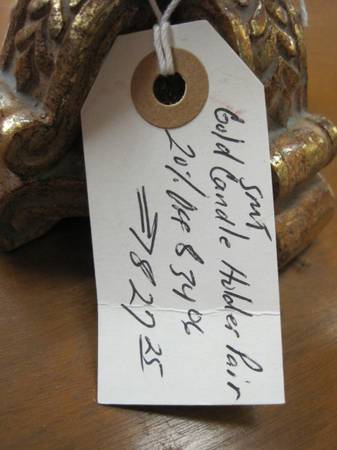 Smt
Gold Candle Holder Pair
20% Off $ 34 06
⇒ $ 27 25